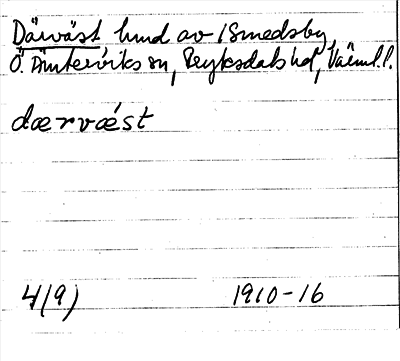 Därväst hmd av Smedsby
Ö. Ämterviks sn, Fryksdals hd, Värml. l.
dærvæst
4(9) 1910-16